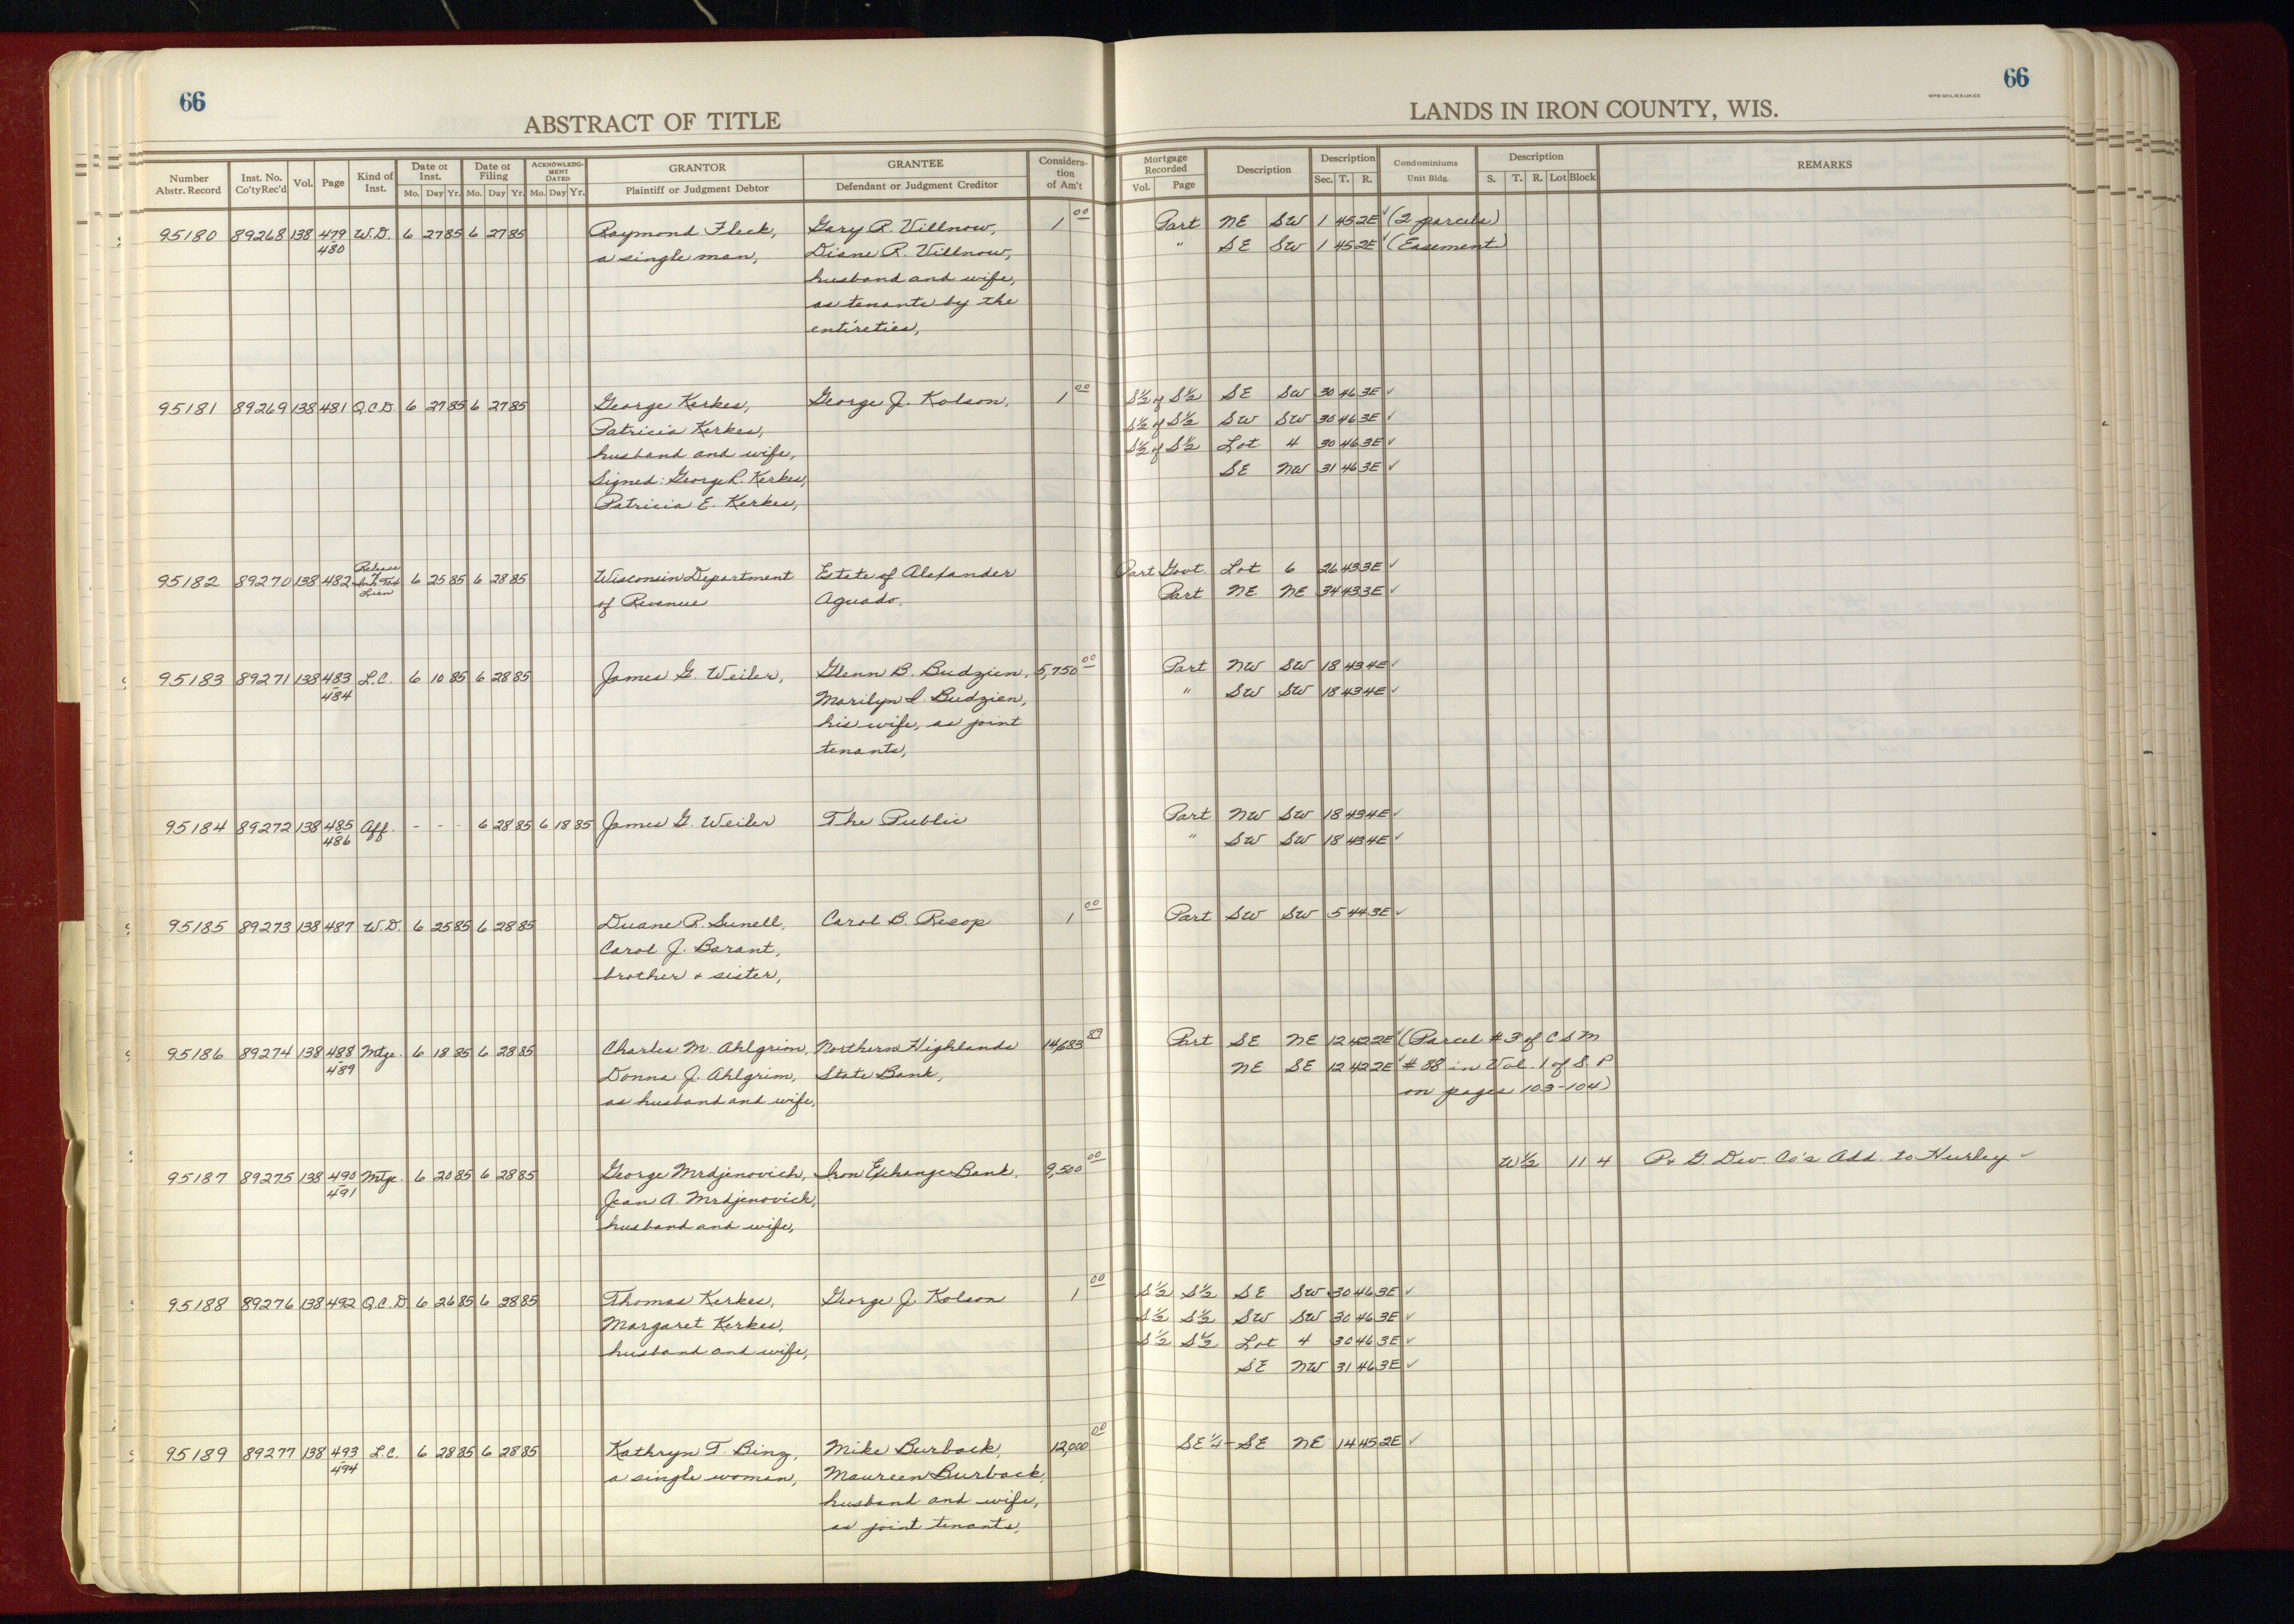 66
ABSTRACT OF TITLE
Number Abstr. Record
Inst. No. Co'ty Rec'd
Vol.
Page
Kind of Inst.
Date of Inst. Mo. Day Yr.
Date of Filing Mo. Day Yr.
ACKNOWLEDGMENT DATED Mo. Day Yr.
GRANTOR
Plaintiff or Judgment Debtor
GRANTEE
Defendant or Judgment Creditor
Consideration of Am't
66
WPB-MILWAUKEE
LANDS IN IRON COUNTY, WIS.
Mortgage Recorded Vol. Page
Description
Description Sec. T. R.
Condominiums Unit Bldg.
Description S. T. R. Lot Block
REMARKS
95180 89268 138 479 W.D. 6 27 85 6 27 85 Raymond Fleck, Gary R. Villnow, 1 00 Part NE SW 1 45 2E ✓ (2 parcels)
480 a single man, Diane R. Villnow, " SE SW 1 45 2E ✓ (Easement)
husband and wife,
as tenants by the
entireties,
95181 89269 138 481 Q.C.D. 6 27 85 6 27 85 George Kerkes, George J. Kolson, 1 00 S½ of S½ SE SW 30 46 3E ✓
Patricia Kerkes, S½ of S½ SW SW 30 46 3E ✓
husband and wife, S½ of S½ Lot 4 30 46 3E ✓
Signed: George L. Kerkes, SE NW 31 46 3E ✓
Patricia E. Kerkes,
95182 89270 138 482 Release of Inh. Tax Lien 6 25 85 6 28 85 Wisconsin Department Estate of Alexander Part Govt. Lot 6 26 43 3E ✓
of Revenue Aguado, Part NE NE 34 43 3E ✓
95183 89271 138 483 L.C. 6 10 85 6 28 85 James G. Weiler, Glenn B. Budzien, 5,750 00 Part NW SW 18 43 4E ✓
484 Marilyn I. Budzien, " SW SW 18 43 4E ✓
his wife, as joint
tenants,
95184 89272 138 485 Aff. - - - 6 28 85 6 18 85 James G. Weiler The Public Part NW SW 18 43 4E ✓
486 " SW SW 18 43 4E ✓
95185 89273 138 487 W.D. 6 25 85 6 28 85 Duane R. Sunell, Carol B. Resop 1 00 Part SW SW 5 44 3E ✓
Carol J. Barant,
brother & sister,
95186 89274 138 488 Mtge. 6 18 85 6 28 85 Charles M. Ahlgrim, Northern Highlands 14,683 89 Part SE NE 12 42 2E ✓ (Parcel #3 of CSM
489 Donna J. Ahlgrim, State Bank, NE SE 12 42 2E ✓ #88 in Vol. 1 of S.P
as husband and wife, on pages 103-104)
95187 89275 138 490 Mtge. 6 20 85 6 28 85 George Mrdjenovich, Iron Exchange Bank, 9,500 00 W½ 11 4 P. & G. Dev. Co's Add. to Hurley ✓
491 Jean A. Mrdjenovich,
husband and wife,
95188 89276 138 492 Q.C.D 6 26 85 6 28 85 Thomas Kerkes, George J. Kolson 1 00 S½ S½ SE SW 30 46 3E ✓
Margaret Kerkes, S½ S½ SW SW 30 46 3E ✓
husband and wife, S½ S½ Lot 4 30 46 3E ✓
SE NW 31 46 3E ✓
95189 89277 138 493 L.C. 6 28 85 6 28 85 Kathryn T. Binz, Mike Burback, 12,000 00 SE¼- SE NE 14 45 2E ✓
494 a single woman, Maureen Burback,
husband and wife,
as joint tenants,